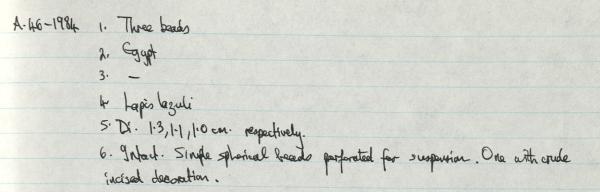 A.46-1984 1. Three beads
2. Egypt
3. —
4. Lapis lazuli
5. Di. 1.3, 1.1, 1.0 cm. respectively.
6. Intact. Simple spherical beads perforated for suspension. One with crude
incised decoration.